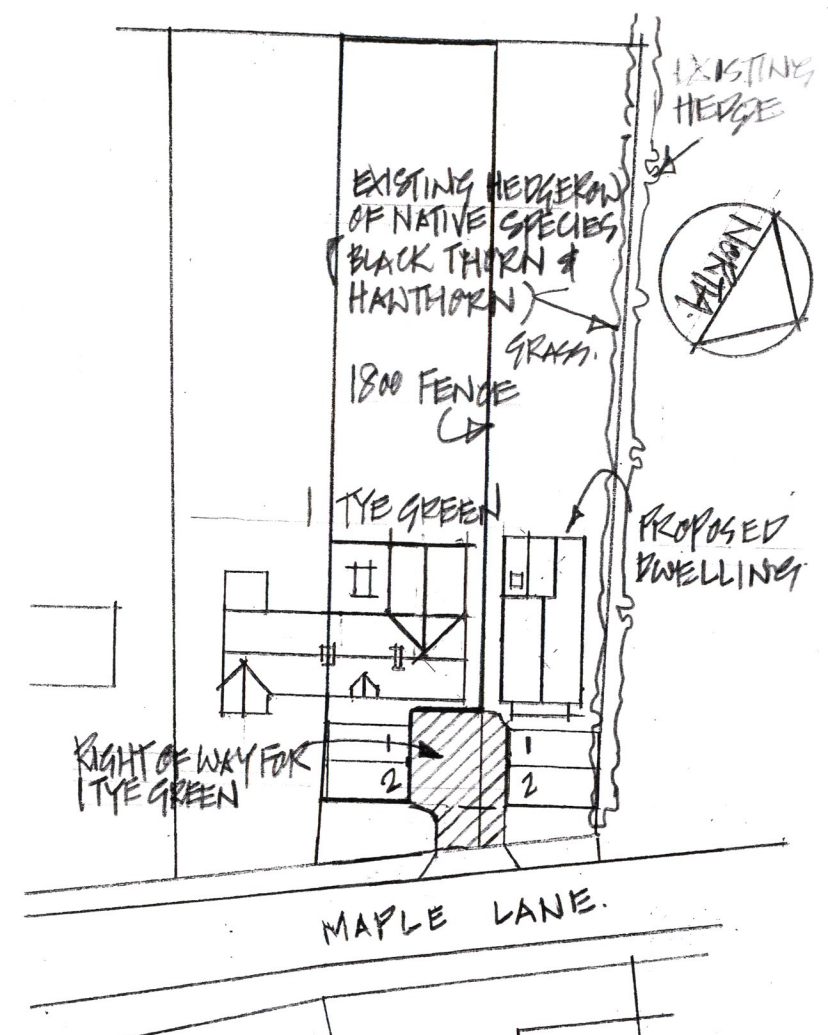 EXISTING
HEDGE
EXISTING HEDGEROW
OF NATIVE SPECIES
BLACK THORN &
HAWTHORN)
NORTH.
GRASS.
1800 FENCE
1 TYE GREEN
PROPOSED
DWELLING
RIGHT OF WAY FOR
1 TYE GREEN
1
2
1
2
MAPLE LANE.